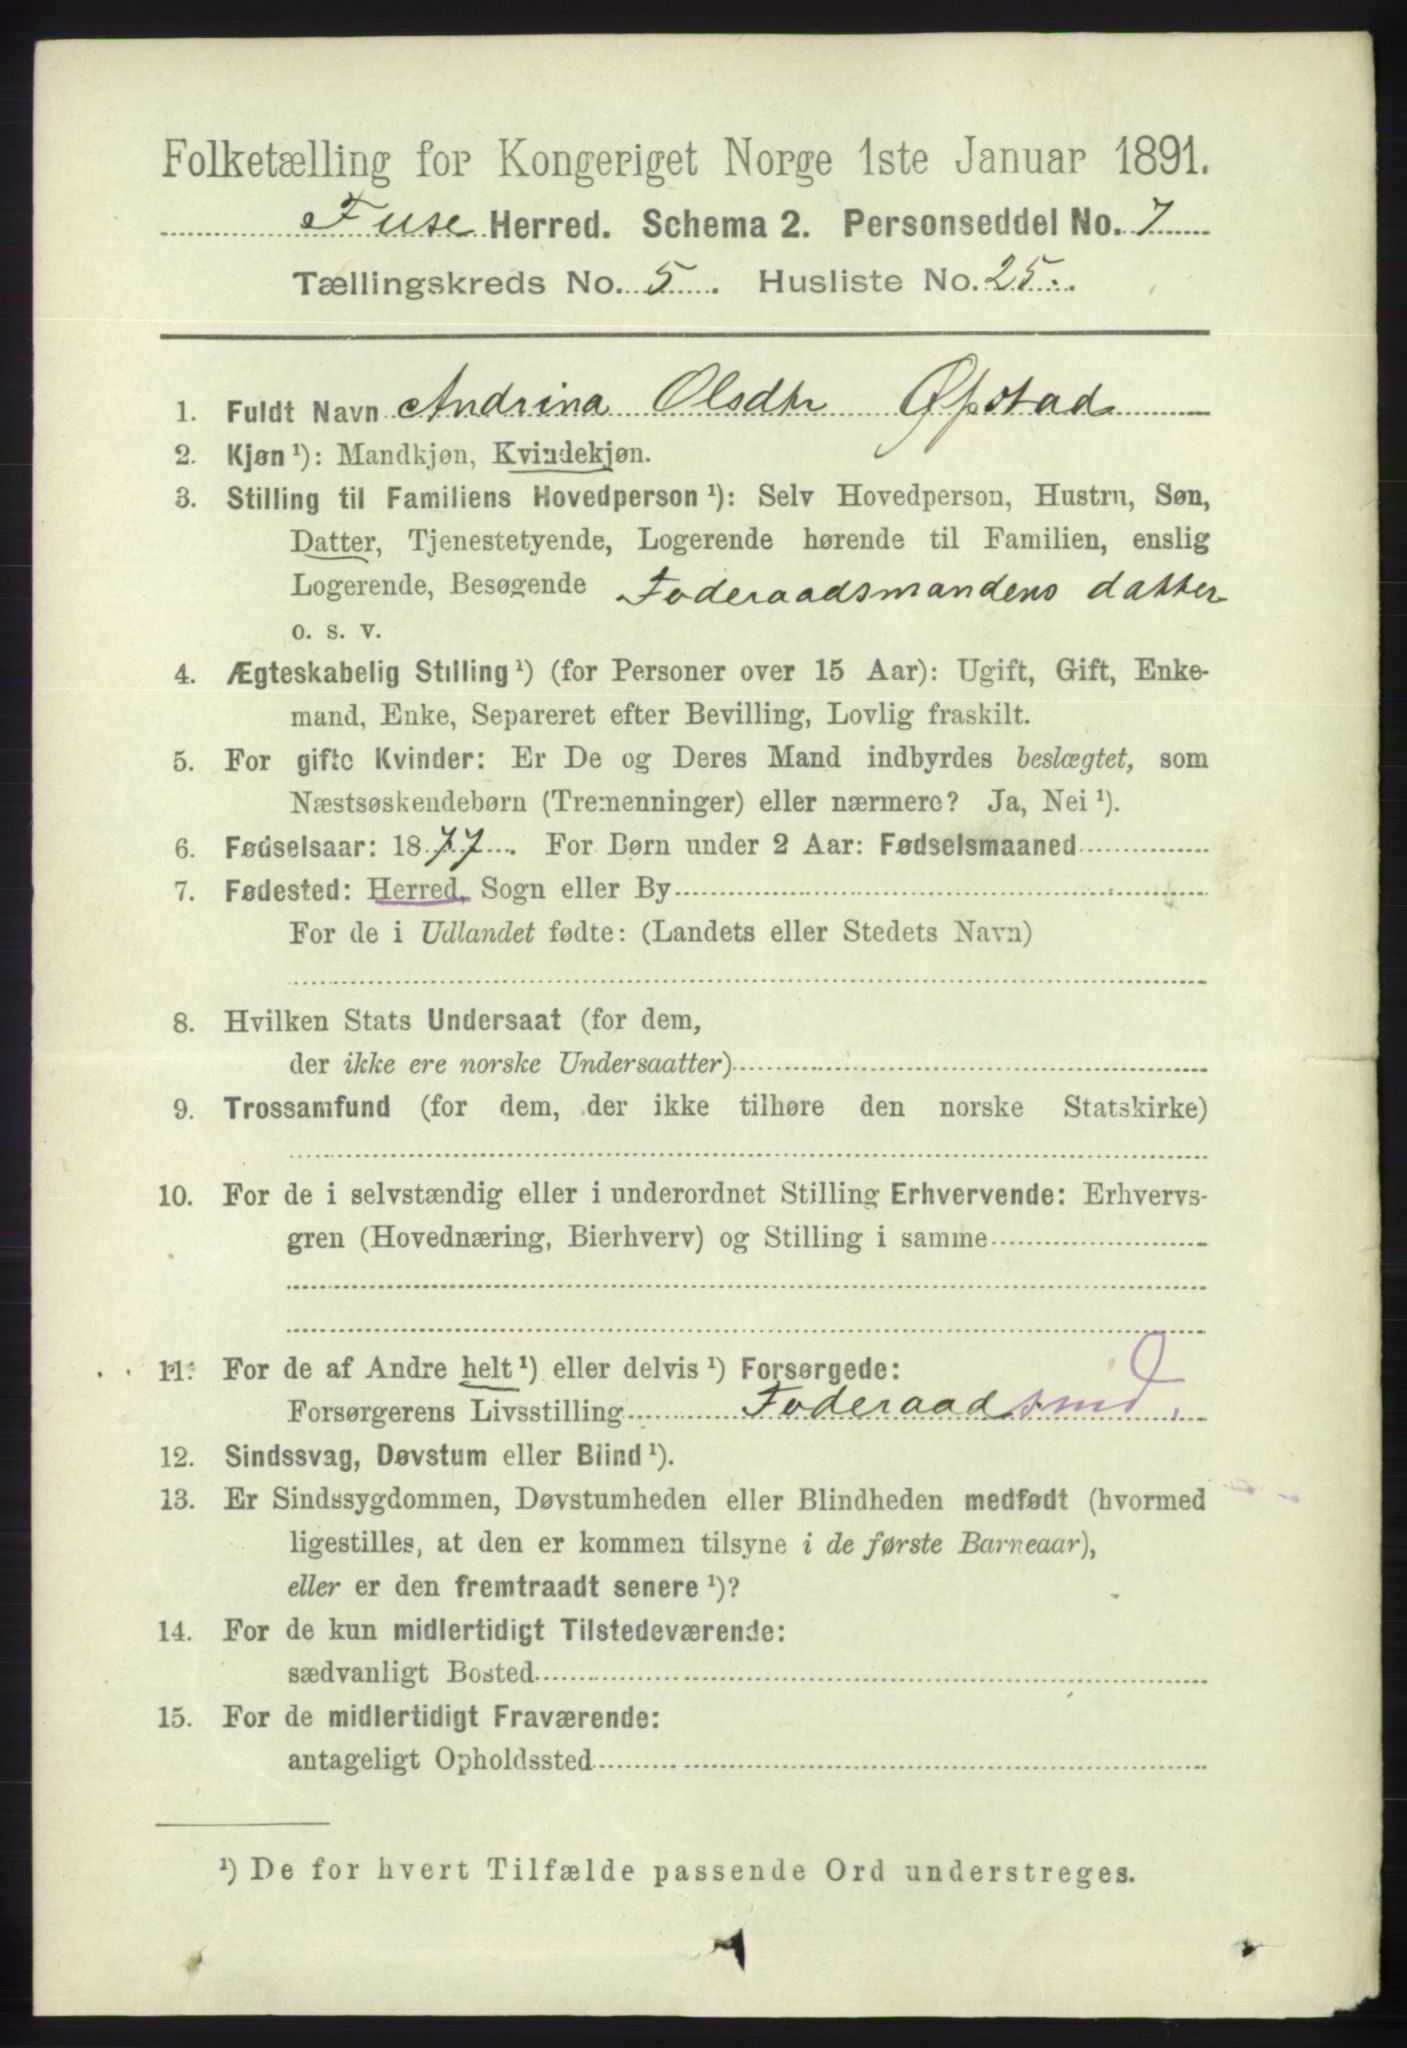 Folketælling for Kongeriget Norge 1ste Januar 1891.
Fuse Herred. Schema 2. Personseddel No. 7
Tællingskreds No. 5. Husliste No. 25.
1. Fuldt Navn Andrina Olsdtr Øpstad
2. Kjøn ¹): Mandkjøn, Kvindekjøn.
3. Stilling til Familiens Hovedperson ¹): Selv Hovedperson, Hustru, Søn,
Datter, Tjenestetyende, Logerende hørende til Familien, enslig
Logerende, Besøgende Foderaadsmandens datter
o. s. v.
4. Ægteskabelig Stilling ¹) (for Personer over 15 Aar): Ugift, Gift, Enke-
mand, Enke, Separeret efter Bevilling, Lovlig fraskilt.
5. For gifte Kvinder: Er De og Deres Mand indbyrdes beslægtet, som
Næstsøskendebørn (Tremenninger) eller nærmere? Ja, Nei ¹).
6. Fødselsaar: 1877. For Børn under 2 Aar: Fødselsmaaned
7. Fødested: Herred, Sogn eller By
For de i Udlandet fødte: (Landets eller Stedets Navn)
8. Hvilken Stats Undersaat (for dem,
der ikke ere norske Undersaatter)
9. Trossamfund (for dem, der ikke tilhøre den norske Statskirke)
10. For de i selvstændig eller i underordnet Stilling Erhvervende: Erhvervs-
gren (Hovednæring, Bierhverv) og Stilling i samme
11. For de af Andre helt ¹) eller delvis ¹) Forsørgede:
Forsørgerens Livsstilling Foderaadsmd.
12. Sindssvag, Døvstum eller Blind ¹).
13. Er Sindssygdommen, Døvstumheden eller Blindheden medfødt (hvormed
ligestilles, at den er kommen tilsyne i de første Barneaar),
eller er den fremtraadt senere ¹)?
14. For de kun midlertidigt Tilstedeværende:
sædvanligt Bosted
15. For de midlertidigt Fraværende:
antageligt Opholdssted
¹) De for hvert Tilfælde passende Ord understreges.